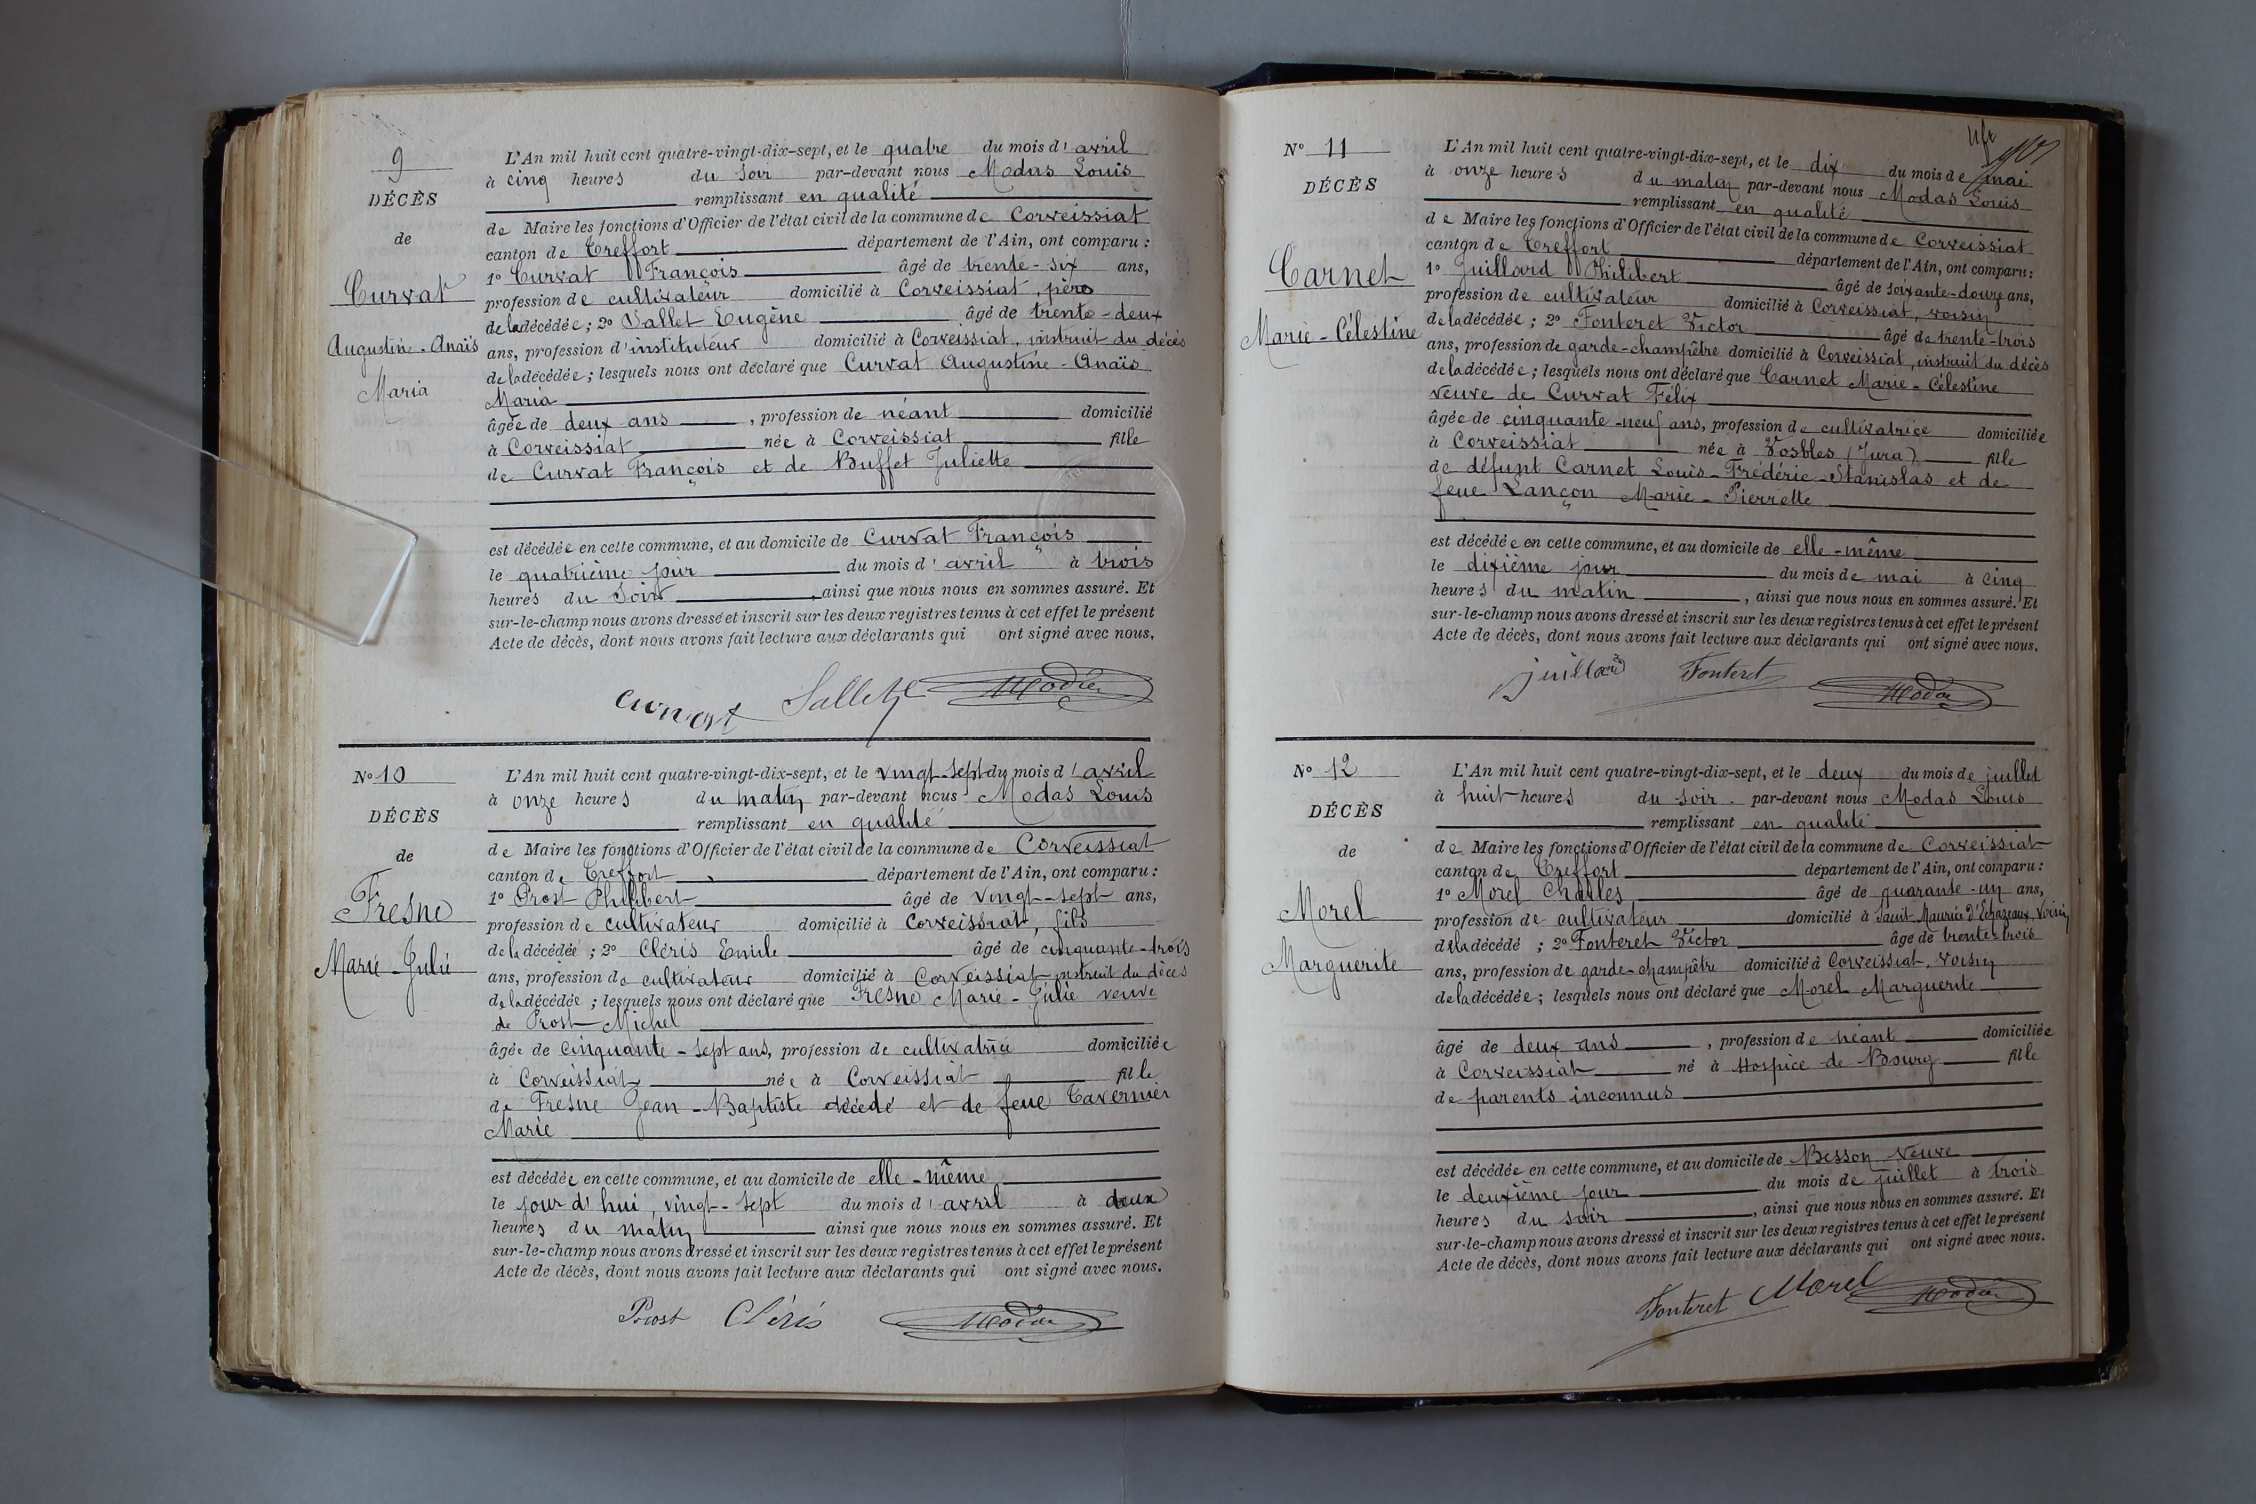 9
DÉCÈS
de
Curvat
Augustine-Anaïs
Maria
L'An mil huit cent quatre-vingt-dix-sept, et le quatre du mois d'avril
à cinq heures du soir par-devant nous Modas Louis
remplissant en qualité
de Maire les fonctions d'Officier de l'état civil de la commune de Corveissiat
canton de Treffort département de l'Ain, ont comparu :
1° Curvat François âgé de trente-six ans,
profession de cultivateur domicilié à Corveissiat, père
de la décédée ; 2° Sallet Eugène âgé de trente-deux
ans, profession d'instituteur domicilié à Corveissiat, instruit du décès
de la décédée ; lesquels nous ont déclaré que Curvat Augustine-Anaïs
Maria
âgée de deux ans, profession de néant domicilié
à Corveissiat née à Corveissiat fille
de Curvat François et de Buffet Juliette
est décédée en cette commune, et au domicile de Curvat François
le quatrième jour du mois d'avril à trois
heures du soir, ainsi que nous nous en sommes assuré. Et
sur-le-champ nous avons dressé et inscrit sur les deux registres tenus à cet effet le présent
Acte de décès, dont nous avons fait lecture aux déclarants qui ont signé avec nous.
Curvat Sallet Modas
N° 10
DÉCÈS
de
Fresne
Marie-Julie
L'An mil huit cent quatre-vingt-dix-sept, et le vingt-sept du mois d'avril
à onze heures du matin par-devant nous Modas Louis
remplissant en qualité
de Maire les fonctions d'Officier de l'état civil de la commune de Corveissiat
canton de Treffort département de l'Ain, ont comparu :
1° Prost Philibert âgé de vingt-sept ans,
profession de cultivateur domicilié à Corveissiat, fils
de la décédée ; 2° Cléris Emile âgé de cinquante-trois
ans, profession de cultivateur domicilié à Corveissiat instruit du décès
de la décédée ; lesquels nous ont déclaré que Fresne Marie-Julie veuve
de Prost Michel
âgée de cinquante-sept ans, profession de cultivatrice domiciliée
à Corveissiat née à Corveissiat fille
de Fresne Jean-Baptiste décédé et de feue Tavernier
Marie
est décédée en cette commune, et au domicile de elle-même
le jour d'hui, vingt-sept du mois d'avril à deux
heures du matin ainsi que nous nous en sommes assuré. Et
sur-le-champ nous avons dressé et inscrit sur les deux registres tenus à cet effet le présent
Acte de décès, dont nous avons fait lecture aux déclarants qui ont signé avec nous.
Prost Cléris Modas
N° 11
DÉCÈS
Carnet
Marie-Célestine
L'An mil huit cent quatre-vingt-dix-sept, et le dix du mois de mai
à onze heures du matin par-devant nous Modas Louis
remplissant en qualité
de Maire les fonctions d'Officier de l'état civil de la commune de Corveissiat
canton de Treffort département de l'Ain, ont comparu :
1° Juillard Philibert âgé de soixante-douze ans,
profession de cultivateur domicilié à Corveissiat, voisin
de la décédée ; 2° Fonteret Victor âgé de trente-trois
ans, profession de garde-champêtre domicilié à Corveissiat, instruit du décès
de la décédée ; lesquels nous ont déclaré que Carnet Marie-Célestine
veuve de Curvat Félix
âgée de cinquante-neuf ans, profession de cultivatrice domiciliée
à Corveissiat née à Vosbles (Jura) fille
de défunt Carnet Louis-Frédéric-Stanislas et de
feue Lançon Marie-Pierrette
est décédée en cette commune, et au domicile de elle-même
le dixième jour du mois de mai à cinq
heures du matin, ainsi que nous nous en sommes assuré. Et
sur-le-champ nous avons dressé et inscrit sur les deux registres tenus à cet effet le présent
Acte de décès, dont nous avons fait lecture aux déclarants qui ont signé avec nous.
juillard Fonteret Modas
N° 12
DÉCÈS
de
Morel
Marguerite
L'An mil huit cent quatre-vingt-dix-sept, et le deux du mois de juillet
à huit heures du soir par-devant nous Modas Louis
remplissant en qualité
de Maire les fonctions d'Officier de l'état civil de la commune de Corveissiat
canton de Treffort département de l'Ain, ont comparu :
1° Morel Charles âgé de quarante-un ans,
profession de cultivateur domicilié à Saint Maurice d'Echazeaux, voisin
de la décédé ; 2° Fonteret Victor âgé de trente-trois
ans, profession de garde-champêtre domicilié à Corveissiat, voisin
de la décédée ; lesquels nous ont déclaré que Morel Marguerite
âgé de deux ans, profession de néant domiciliée
à Corveissiat né à Hospice de Bourg fille
de parents inconnus
est décédée en cette commune, et au domicile de Besson veuve
le deuxième jour du mois de juillet à trois
heures du soir, ainsi que nous nous en sommes assuré. Et
sur-le-champ nous avons dressé et inscrit sur les deux registres tenus à cet effet le présent
Acte de décès, dont nous avons fait lecture aux déclarants qui ont signé avec nous.
Fonteret Morel Modas